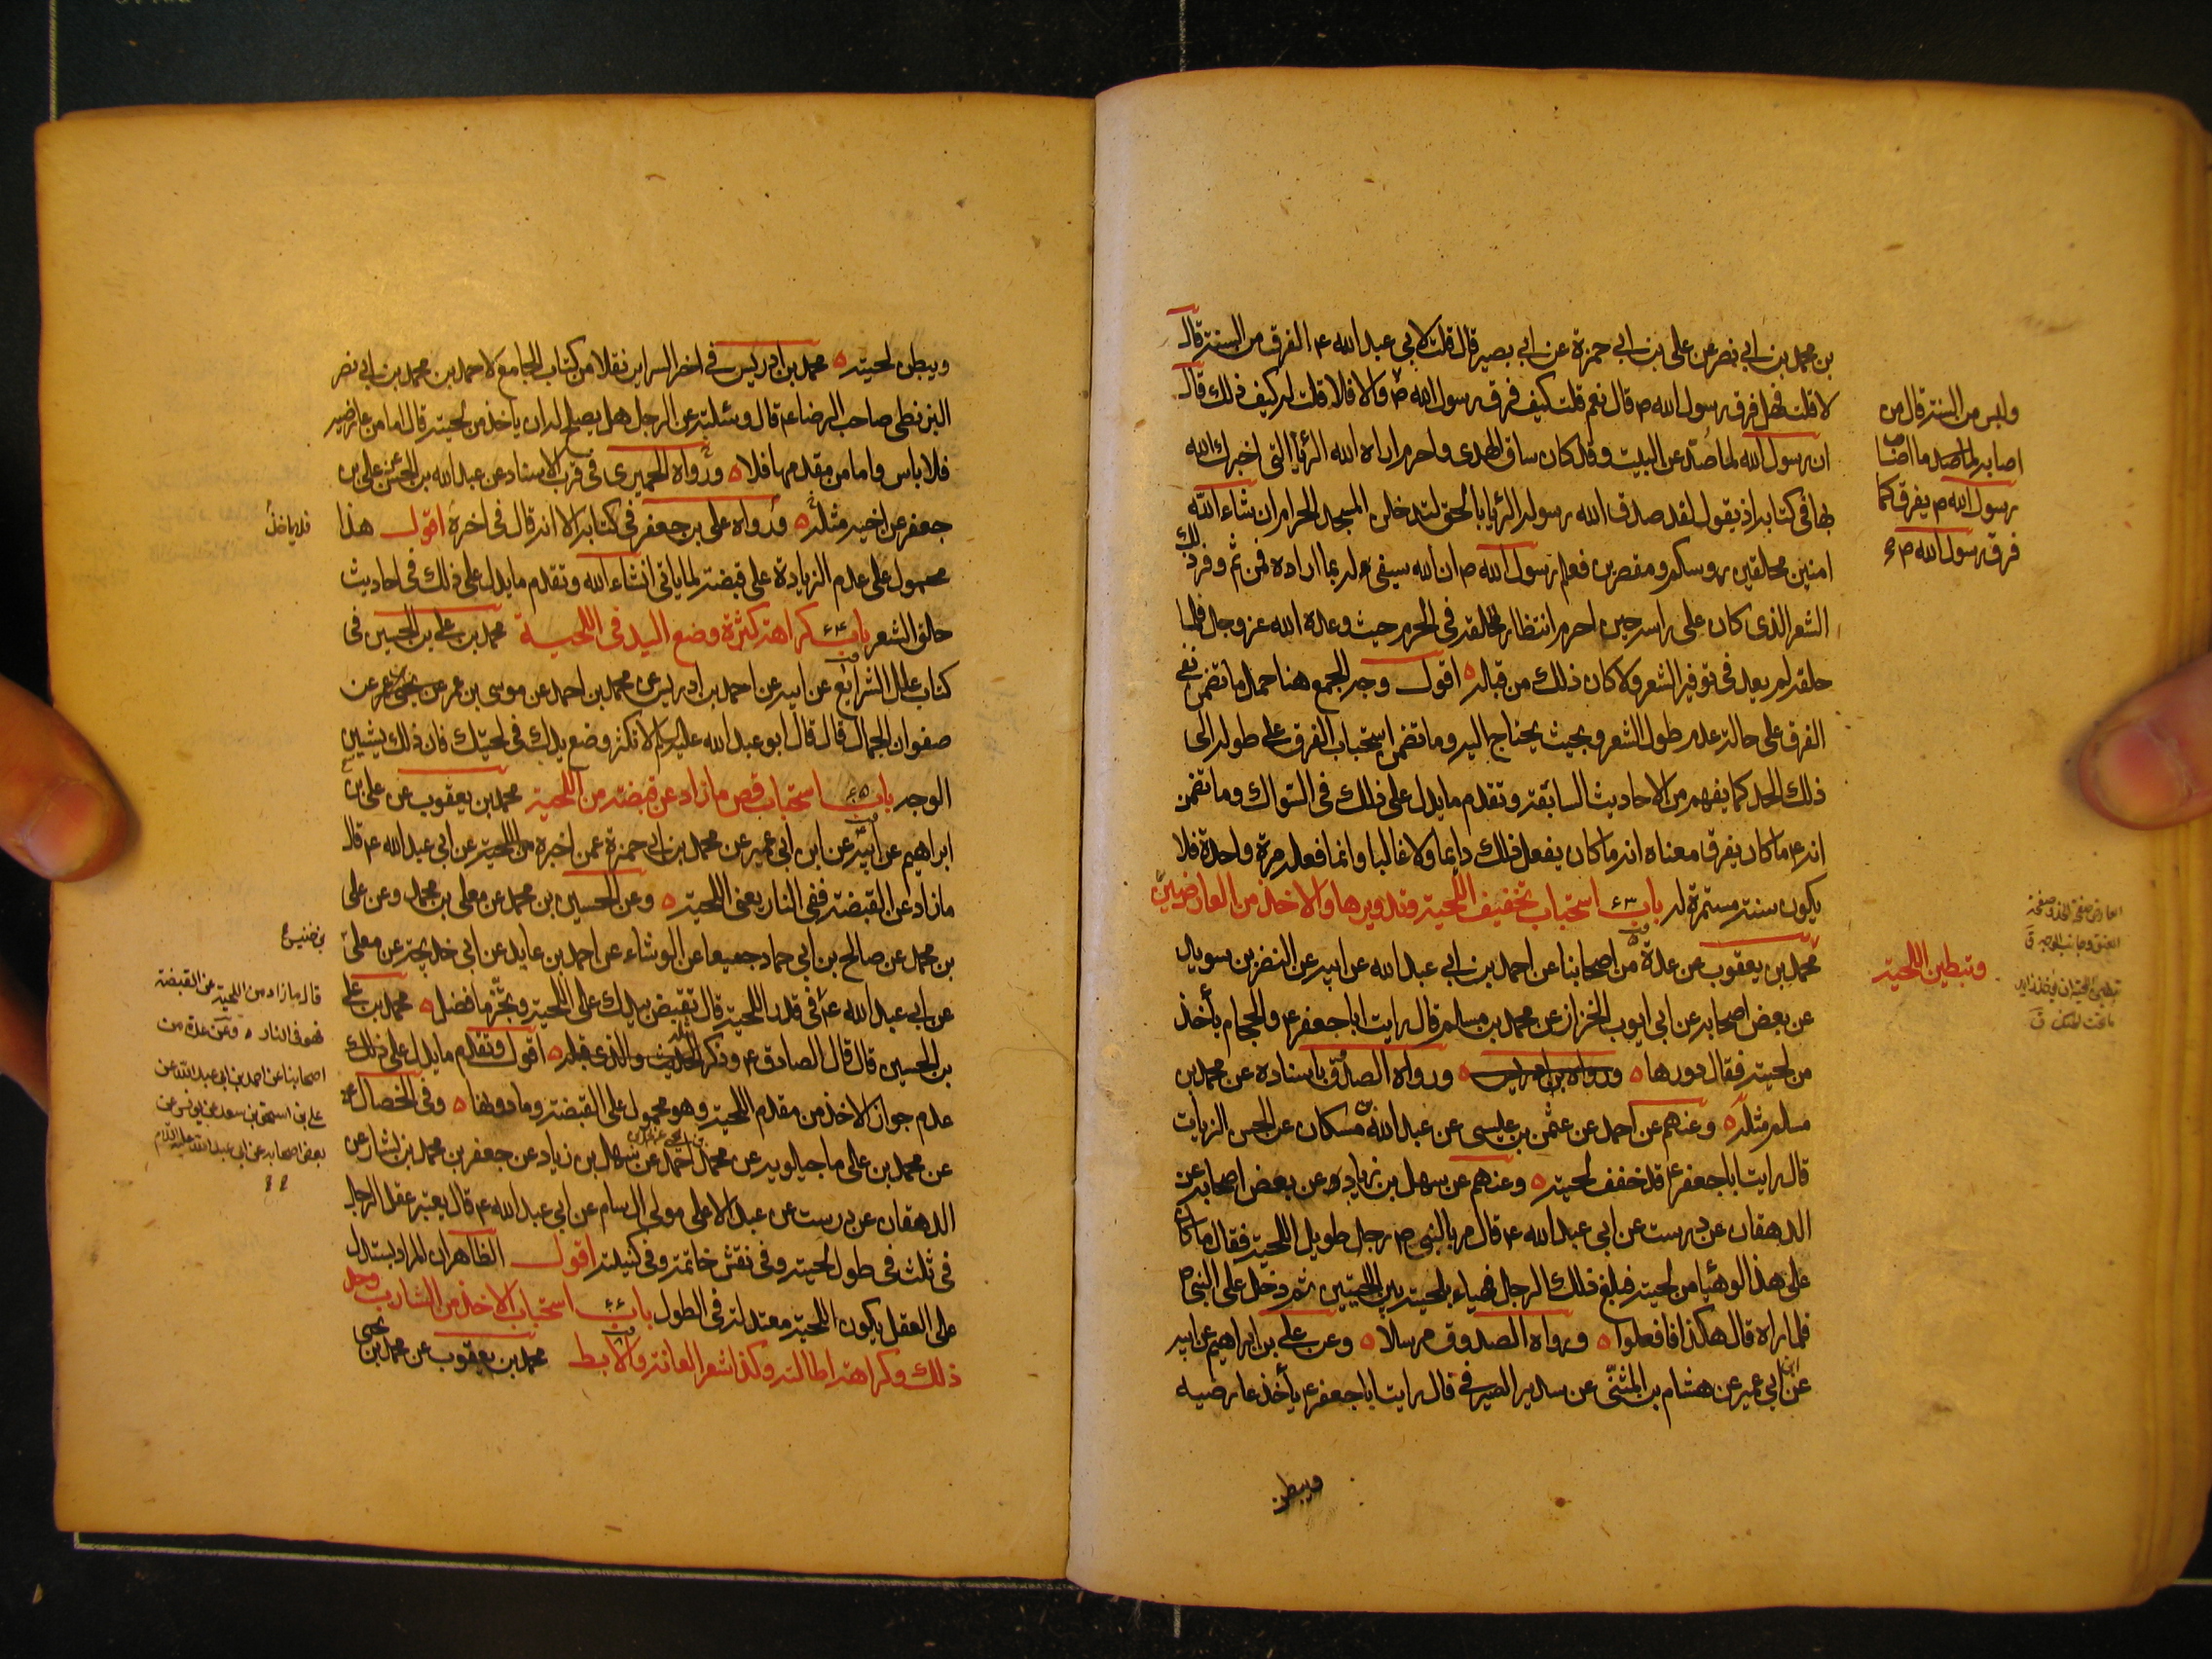 بن محمد بن ابي نصر عن علي بن ابي حمزة عن ابي بصير قال قلت لابي عبد الله ع الفرق من السنة قال
لا قلت فهل فرق رسول الله ص قال نعم قلت كيف فرق رسول الله ص والا فلا قلت له كيف ذلك قال
ان رسول الله لما صد عن البيت وقد كان ساق الهدى واحرم اراه الله الرؤيا التي اخبرك الله
بها في كتابه اذ يقول لقد صدق الله رسوله الرؤيا بالحق لتدخلن المسجد الحرام ان شاء الله
امنين محلقين رؤسكم ومقصرين فعلم رسول الله ص ان الله سيفي له بما اراه فمن ثم وفر ذلك
الشعر الذي كان على راسه حين احرم انتظارا لحلقه في الحرم حيث وعده الله عز وجل فلما
حلقه لم يعد في توفير الشعر ولا كان ذلك من قبله اقول وجه الجمع هنا حمل ما تضمن نفي
الفرق على حالة عدم طول الشعر وبحيث يحتاج اليه وما تضمن استحباب الفرق على طوله الى
ذلك الحد كما يفهم من الاحاديث السابقة وتقدم ما يدل على ذلك في السواك وما تضمن
انه ع ما كان يفرق معناه انه ما كان يفعل ذلك دايما ولا غالبا وانما فعله مرة واحدة فلا
يكون سنة مستمرة له باب ٦٣ استحباب تخفيف اللحية وتدويرها والاخذ من العارضين
محمد بن يعقوب عن عدة من اصحابنا عن احمد بن ابي عبد الله عن ابيه عن النضر بن سويد
عن بعض اصحابه عن ابي ايوب الخزاز عن محمد بن مسلم قال رايت ابا جعفر ع والحجام يأخذ
من لحيته فقال دورها ورواه الصدوق باسناده عن محمد بن
مسلم مثله وعنهم عن احمد عن عثمن بن عيسى عن عبد الله بن مسكان عن الحسن الزيات
قال رايت ابا جعفر ع قد خفف لحيته وعنهم عن سهل بن زياد وعن بعض اصحابه عن
الدهقان عن درست عن ابي عبد الله ع قال مر بالنبي ص رجل طويل اللحية فقال ما كان
على هذا لو هيأ من لحيته فبلغ ذلك الرجل فهياء بلحيته بين اللحيتين ثم دخل على النبي ص
فلما راه قال هكذا فافعلوا ورواه الصدوق مرسلا وعن علي بن ابراهيم عن ابيه
عن ابن ابي عمير عن هشام بن المثنى عن سدير الصيرفي قال رايت ابا جعفر ع يأخذ عارضيه
ويبطن
وليس من السنة قال من
اصابه ما اصاب
رسول الله ص يفرق كما
فرق رسول الله ص
وتبطين اللحية
ويبطن لحيته محمد بن ادريس في اخر السراير نقلا من كتاب الجامع لاحمد بن محمد بن ابي نصر
البزنطي صاحب الرضا ع قال وسئلته عن الرجل هل يصلح له ان ياخذ من لحيته قال اما من عارضيه
فلا باس واما من مقدمها فلا ورواه الحميري في قرب الاسناد عن عبد الله بن الحسن عن علي بن
جعفر عن اخيه مثله ورواه علي بن جعفر في كتابه الا انه قال في اخره اقول هذا
محمول على عدم الزيادة على قبضة لما ياتي انشاء الله وتقدم ما يدل على ذلك في احاديث
حلق الشعر باب ٦٤ كراهة كثرة وضع اليد في اللحية محمد بن علي بن الحسين في
كتاب علل الشرايع عن ابيه عن احمد بن ادريس عن محمد بن احمد عن موسى بن عمر عن يحيى بن عمر عن
صفوان الجمال قال قال ابو عبد الله عليه السلام لا تكثر وضع يدك في لحيتك فان ذلك يشين
الوجه باب ٦٥ استحباب قص ما زاد عن قبضة من اللحية محمد بن يعقوب عن علي بن
ابراهيم عن ابيه عن ابن ابي عمير عن محمد بن ابي حمزة عمن اخبره عن ابي عبد الله ع قال
ما زاد عن القبضة ففي النار يعني اللحية وعن الحسين بن محمد عن معلى بن محمد وعن علي
بن محمد عن صالح بن ابي حماد جميعا عن الوشاء عن احمد بن عايذ عن ابي خديجة عن معلى
عن ابي عبد الله ع في قدر اللحية قال تقبض بيدك على اللحية وتجز ما فضل محمد بن علي
بن الحسين قال قال الصادق ع وذكر الحديث والذي قبله اقول وتقدم ما يدل على ذلك
عدم جواز الاخذ من مقدم اللحية وهو محمول على القبضة وما دونها وفي الخصال
عن محمد بن علي ماجيلويه عن محمد بن احمد عن سهل بن زياد عن جعفر بن محمد بن بشار عن
الدهقان عن درست عن عبد الاعلى مولى ال سام عن ابي عبد الله ع قال يعتبر عقل الرجل
في ثلث في طول لحيته وفي نقش خاتمه وفي كنيته اقول الظاهر ان المراد يستدل
على العقل بكون اللحية معتدلة في الطول باب ٦٦ استحباب الاخذ من الشارب وحد
ذلك وكراهة اطالته وكذا شعر العانة والابط محمد بن يعقوب عن محمد بن يحيى
فلا ياخذ
بن خنيس
قال ما زاد من اللحية عن القبضة
فهو في النار وعن عدة من
اصحابنا عن احمد بن ابي عبد الله عن
علي بن اسحق بن سعد عن يونس عن
بعض اصحابه عن ابي عبد الله عليه السلام